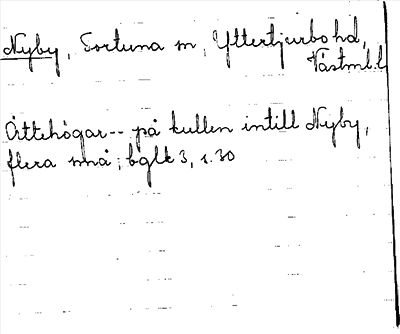 Nyby, Sortuna sn, Yttertjurbo hd,
Västml.l.
Ättehögar-- på kullen intill Nyby,
flera små; bglk 3, s.30